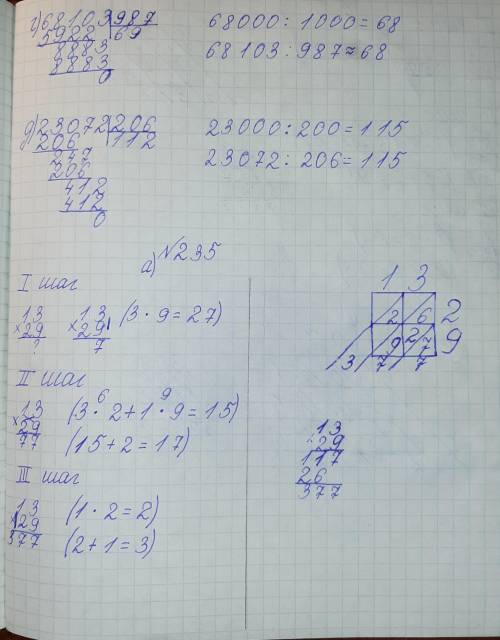 г) 68103 | 987    68000 : 1000 = 68
5922 | 69    68103 : 987 ≈ 68
8883
8883
0
д) 23072 | 206    23000 : 200 = 115
206 | 112    23072 : 206 ≈ 115
247
206
412
412
0
а) №235
I шаг
13    13    (3 · 9 = 27)
×29    ×29
?    7
II шаг
13    (3 · 2 + 1 · 9 = 15)
6    9
×29    (15 + 2 = 17)
77
III шаг
13    (1 · 2 = 2)
×29    (2 + 1 = 3)
377
1 3
2 6 2
9 2 7 9
3 7 7
13
×29
117
26
377